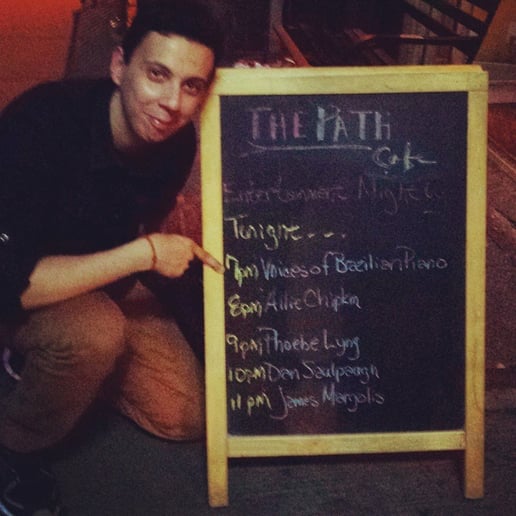 THE PATH
Cafe
Entertainment Nightly
Tonight...
7pm Voices of Brazilian Piano
8pm Allie Chipkin
9pm Phoebe Lyng
10pm Dan Saulpaugh
11pm James Margolis